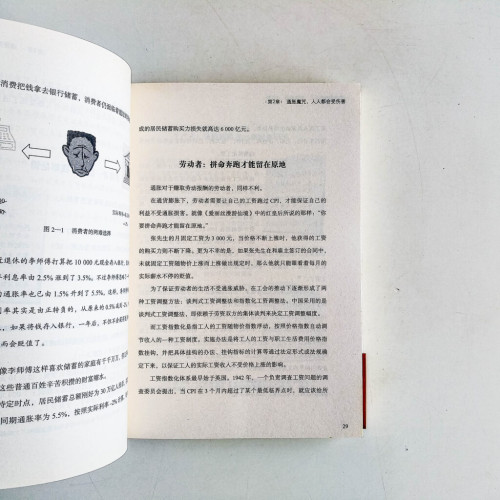 消费把钱拿去银行储蓄，消费者仍
图 2—1 消费者的两难选择
退休的李师傅打算把 10 000 元现金存入银行，
利息率由 2.5% 涨到了 3.5%。
通胀率也已由 1.5% 升到了 5.5%，这样，
率其实是由正转负的，从原来的
，如果将钱存入银行，一年后，不但不会
而会贬值了。
像李师傅这样喜欢储蓄的家庭有千千万万，
这些普通百姓辛苦积攒的财富缩水。
待定时点，居民储蓄总额刚好为 30 万亿人
同期通胀率为 5.5%，按照实际利率 -2%
第2章： 通胀魔咒，人人都会受伤害
成的居民储蓄购买力损失就高达 6 000 亿元。
劳动者：拼命奔跑才能留在原地
通胀对于赚取劳动报酬的劳动者，同样不利。
在通货膨胀下，劳动者需要让自己的工资跑过 CPI，才能保证自己的
利益不受通胀剥害。就像《爱丽丝漫游仙境》中的红皇后所说的那样：“你
要拼命奔跑才能留在原地。”
张先生的月固定工资为 3 000 元，当价格不断上涨时，他获得的工资
的购买力则不断下降。更为不幸的是，如果张先生在和雇主签订的合同中，
未就固定工资随物价上涨而上涨做出规定时，那么他就只能揣着着每月的
实际薪水不停的贬值。
为了保证劳动者的生活不受通涨威胁，在工会的推动下逐渐形成了两
种工资调整方法：谈判式工资调整法和指数化工资调整法。中国采用的是
谈判式工资调整法，即依赖于劳资双方的集体谈判来决定工资调整幅度。
而工资指数化是指工人的工资随物价指数浮动，按照价格指数自动调
节收入的一种工资制度。实施办法是将工人的工资与职工生活费用价格指
数挂钩，并把具体挂钩的办法、挂钩指标的计算等通过法定形式或法规通
定下来，以保证工人的实际工资收入不受价格上涨的影响。
工资指数化体系最早始于英国。1942 年，一个负责调查工资问题的调
查委员会提出，当 CPI 在 3 个月内超过了某个最低临界点时，就应该给所
29